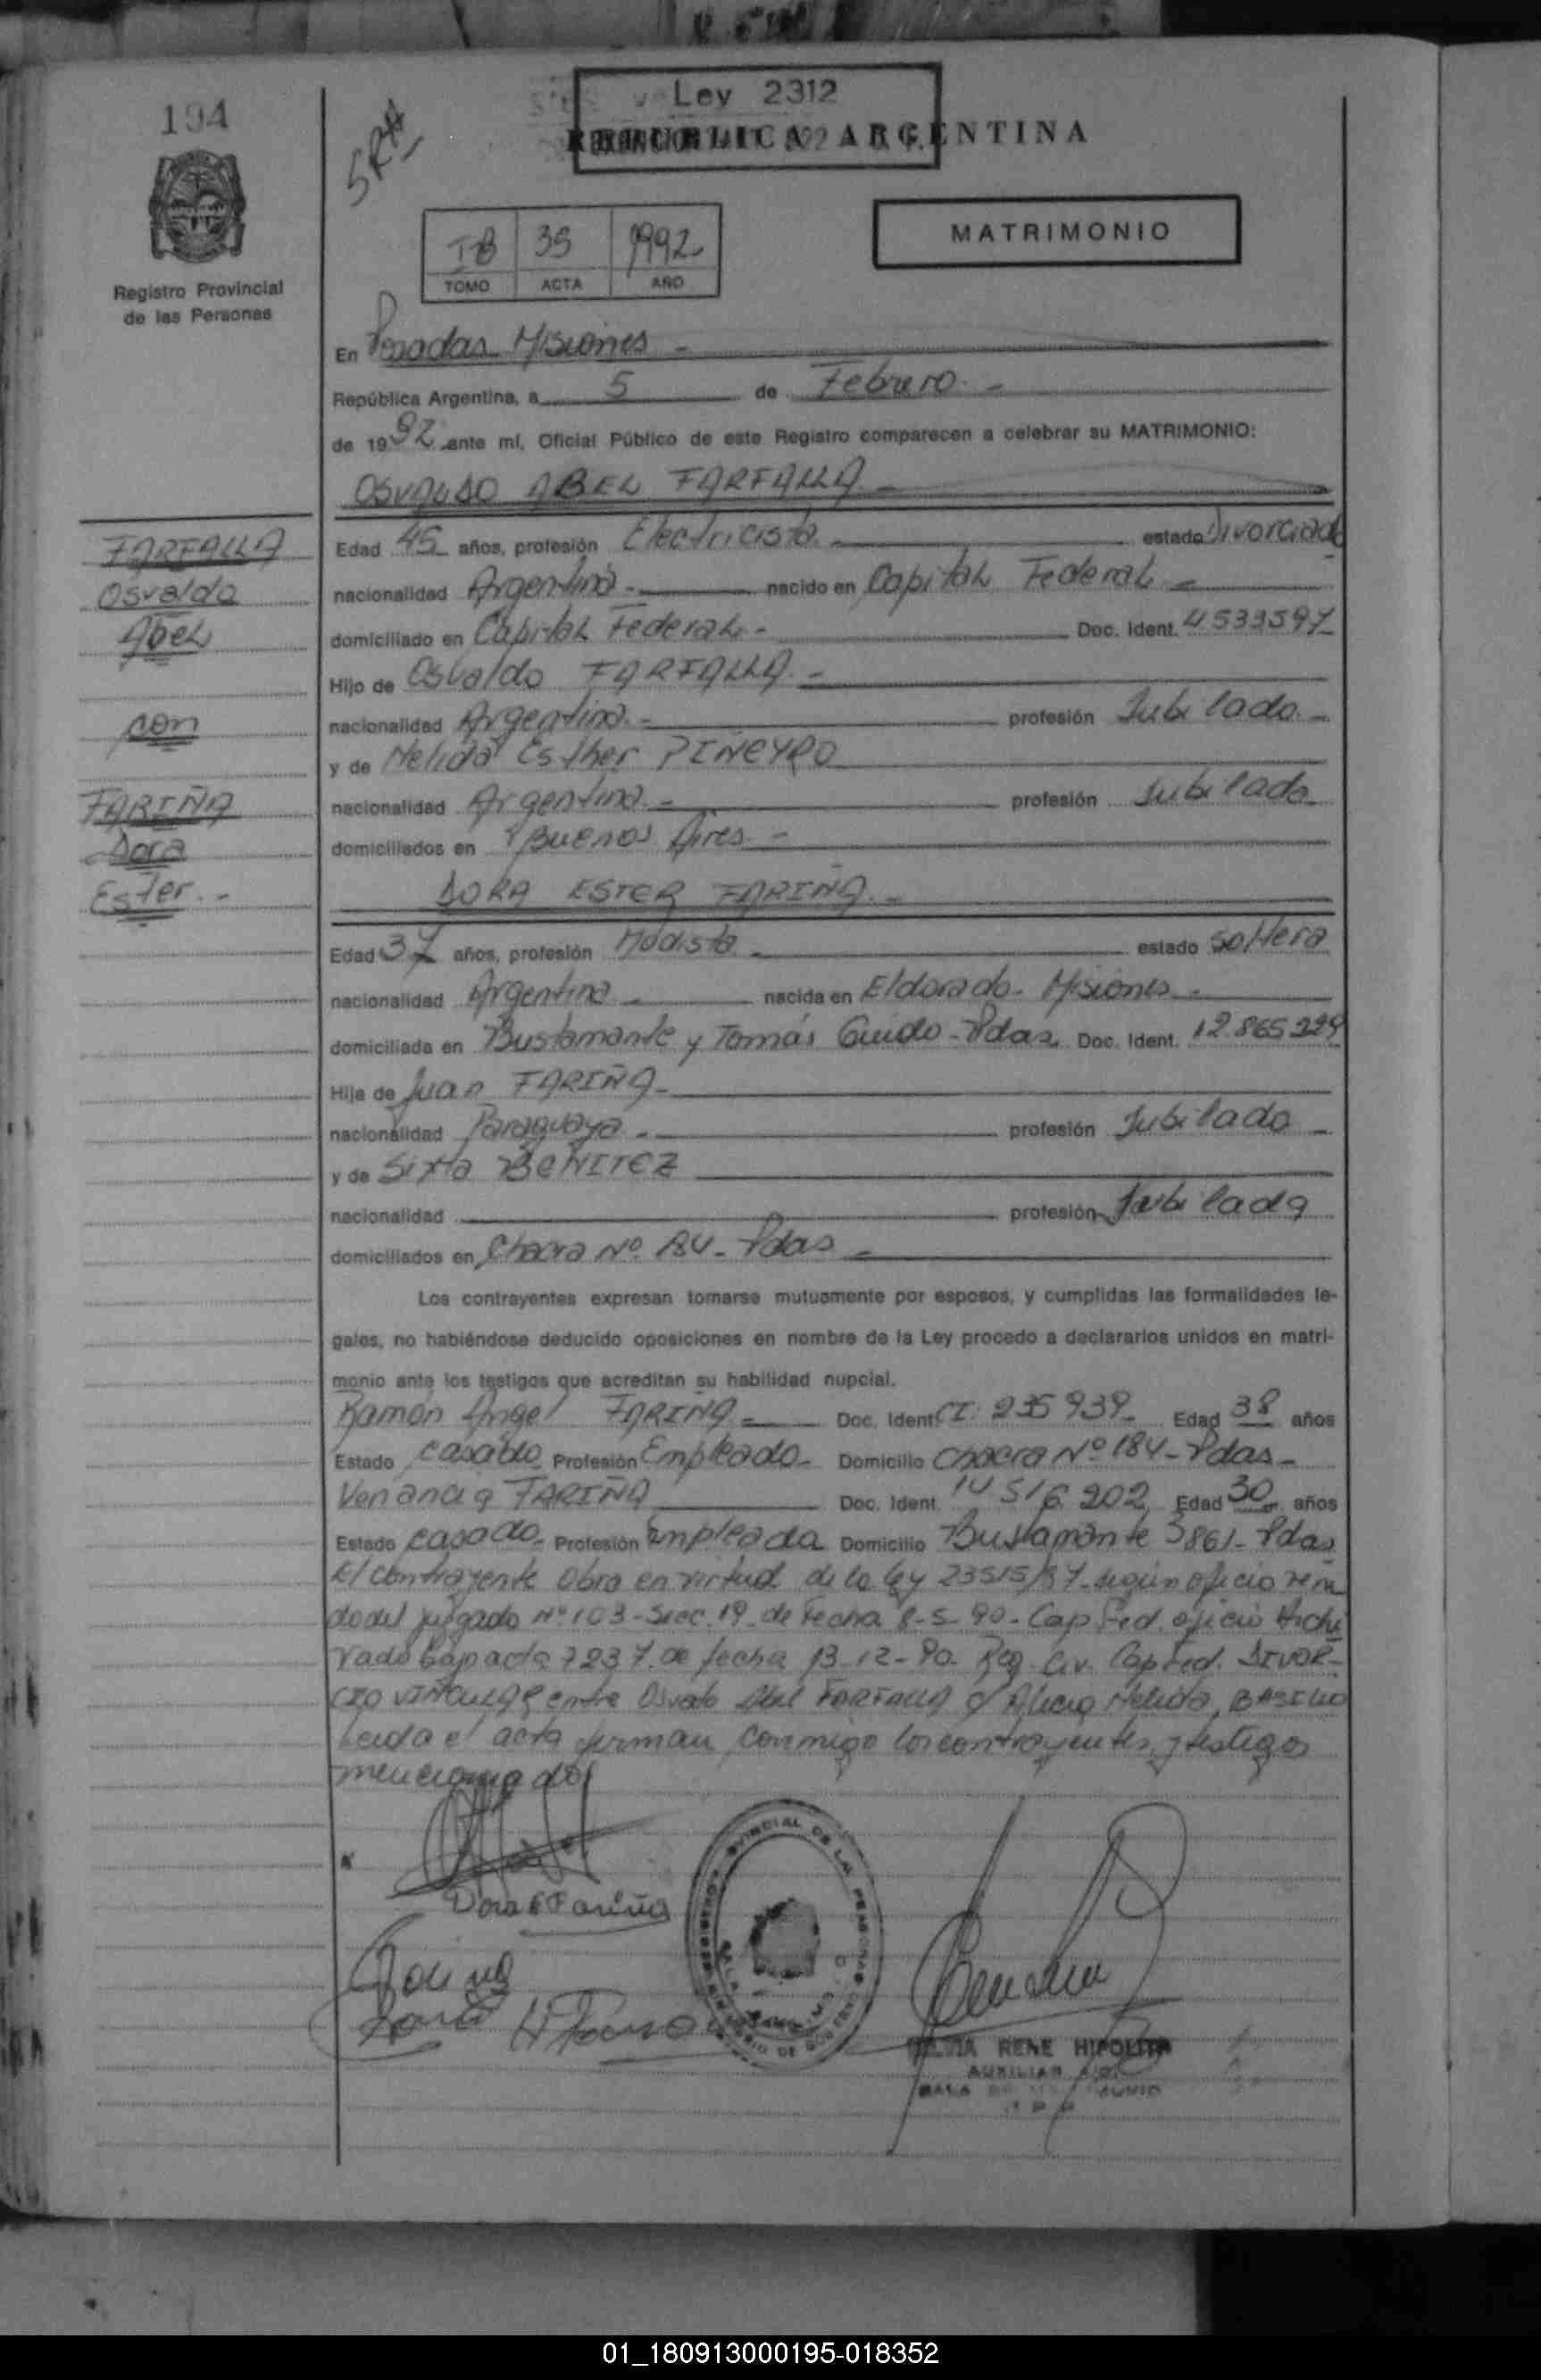 194
SRA
Ley 2312
REPUBLICA ARGENTINA
Registro Provincial
de las Personas
IB 35 1992
TOMO ACTA AÑO
MATRIMONIO
En Posadas Misiones -
República Argentina, a 5 de Febrero. -
de 1992 ante mí, Oficial Público de este Registro comparecen a celebrar su MATRIMONIO:
OSVALDO ABEL FARFALLA -
FARFALLA
Osvaldo
Abel
con
FARIÑA
Dora
Ester. -
Edad 45 años, profesión Electricista. estado Divorciado
nacionalidad Argentina - nacido en Capital Federal -
domiciliado en Capital Federal - Doc. Ident. 4.533597
Hijo de Osvaldo FARFALLA -
nacionalidad Argentina. - profesión Jubilado -
y de Nelida Esther PIÑEYRO
nacionalidad Argentina - profesión Jubilada
domiciliados en Buenos Aires -
DORA ESTER FARIÑA. -
Edad 37 años, profesión Modista estado soltera
nacionalidad Argentina - nacida en Eldorado - Misiones -
domiciliada en Bustamante y Tomás Guido - Pdas. Doc. Ident. 12.865
Hija de Juan FARIÑA -
nacionalidad Paraguaya - profesión Jubilado -
y de Sixta BENITEZ
nacionalidad profesión Jubilada
domiciliados en Chacra Nº 184 - Pdas -
Los contrayentes expresan tomarse mutuamente por esposos, y cumplidas las formalidades le-
gales, no habiéndose deducido oposiciones en nombre de la Ley procedo a declararlos unidos en matri-
monio ante los testigos que acreditan su habilidad nupcial.
Ramón Angel FARIÑA - Doc. Ident. CI. 235939 - Edad 38 años
Estado casado Profesión Empleado - Domicilio Chacra Nº 184 - Pdas -
Venancia FARIÑA Doc. Ident. 14516202 Edad 30 años
Estado casado - Profesión Empleada Domicilio Bustamante 5861 - Pdas
El contrayente Obra en virtud de la ley 23515/87 - según oficio remi
do del juzgado Nº 103 - Srec. 19 - de Fecha 8-5-90 - Cap Fed. oficio Archi
vado bajo acta 7237. de fecha 13-12-90 Reg. Civ. Cap Fed. DIVOR-
CIO VINCULAR entre Osvaldo Abel FARFALLA c/ Alicia Nelida, BASILIO
Leida el acta firman conmigo los contrayentes y testigos
mencionados
Dora E Fariña
SILVIA RENE HIPOLITA
AUXILIAR
SALA
01_180913000195-018352